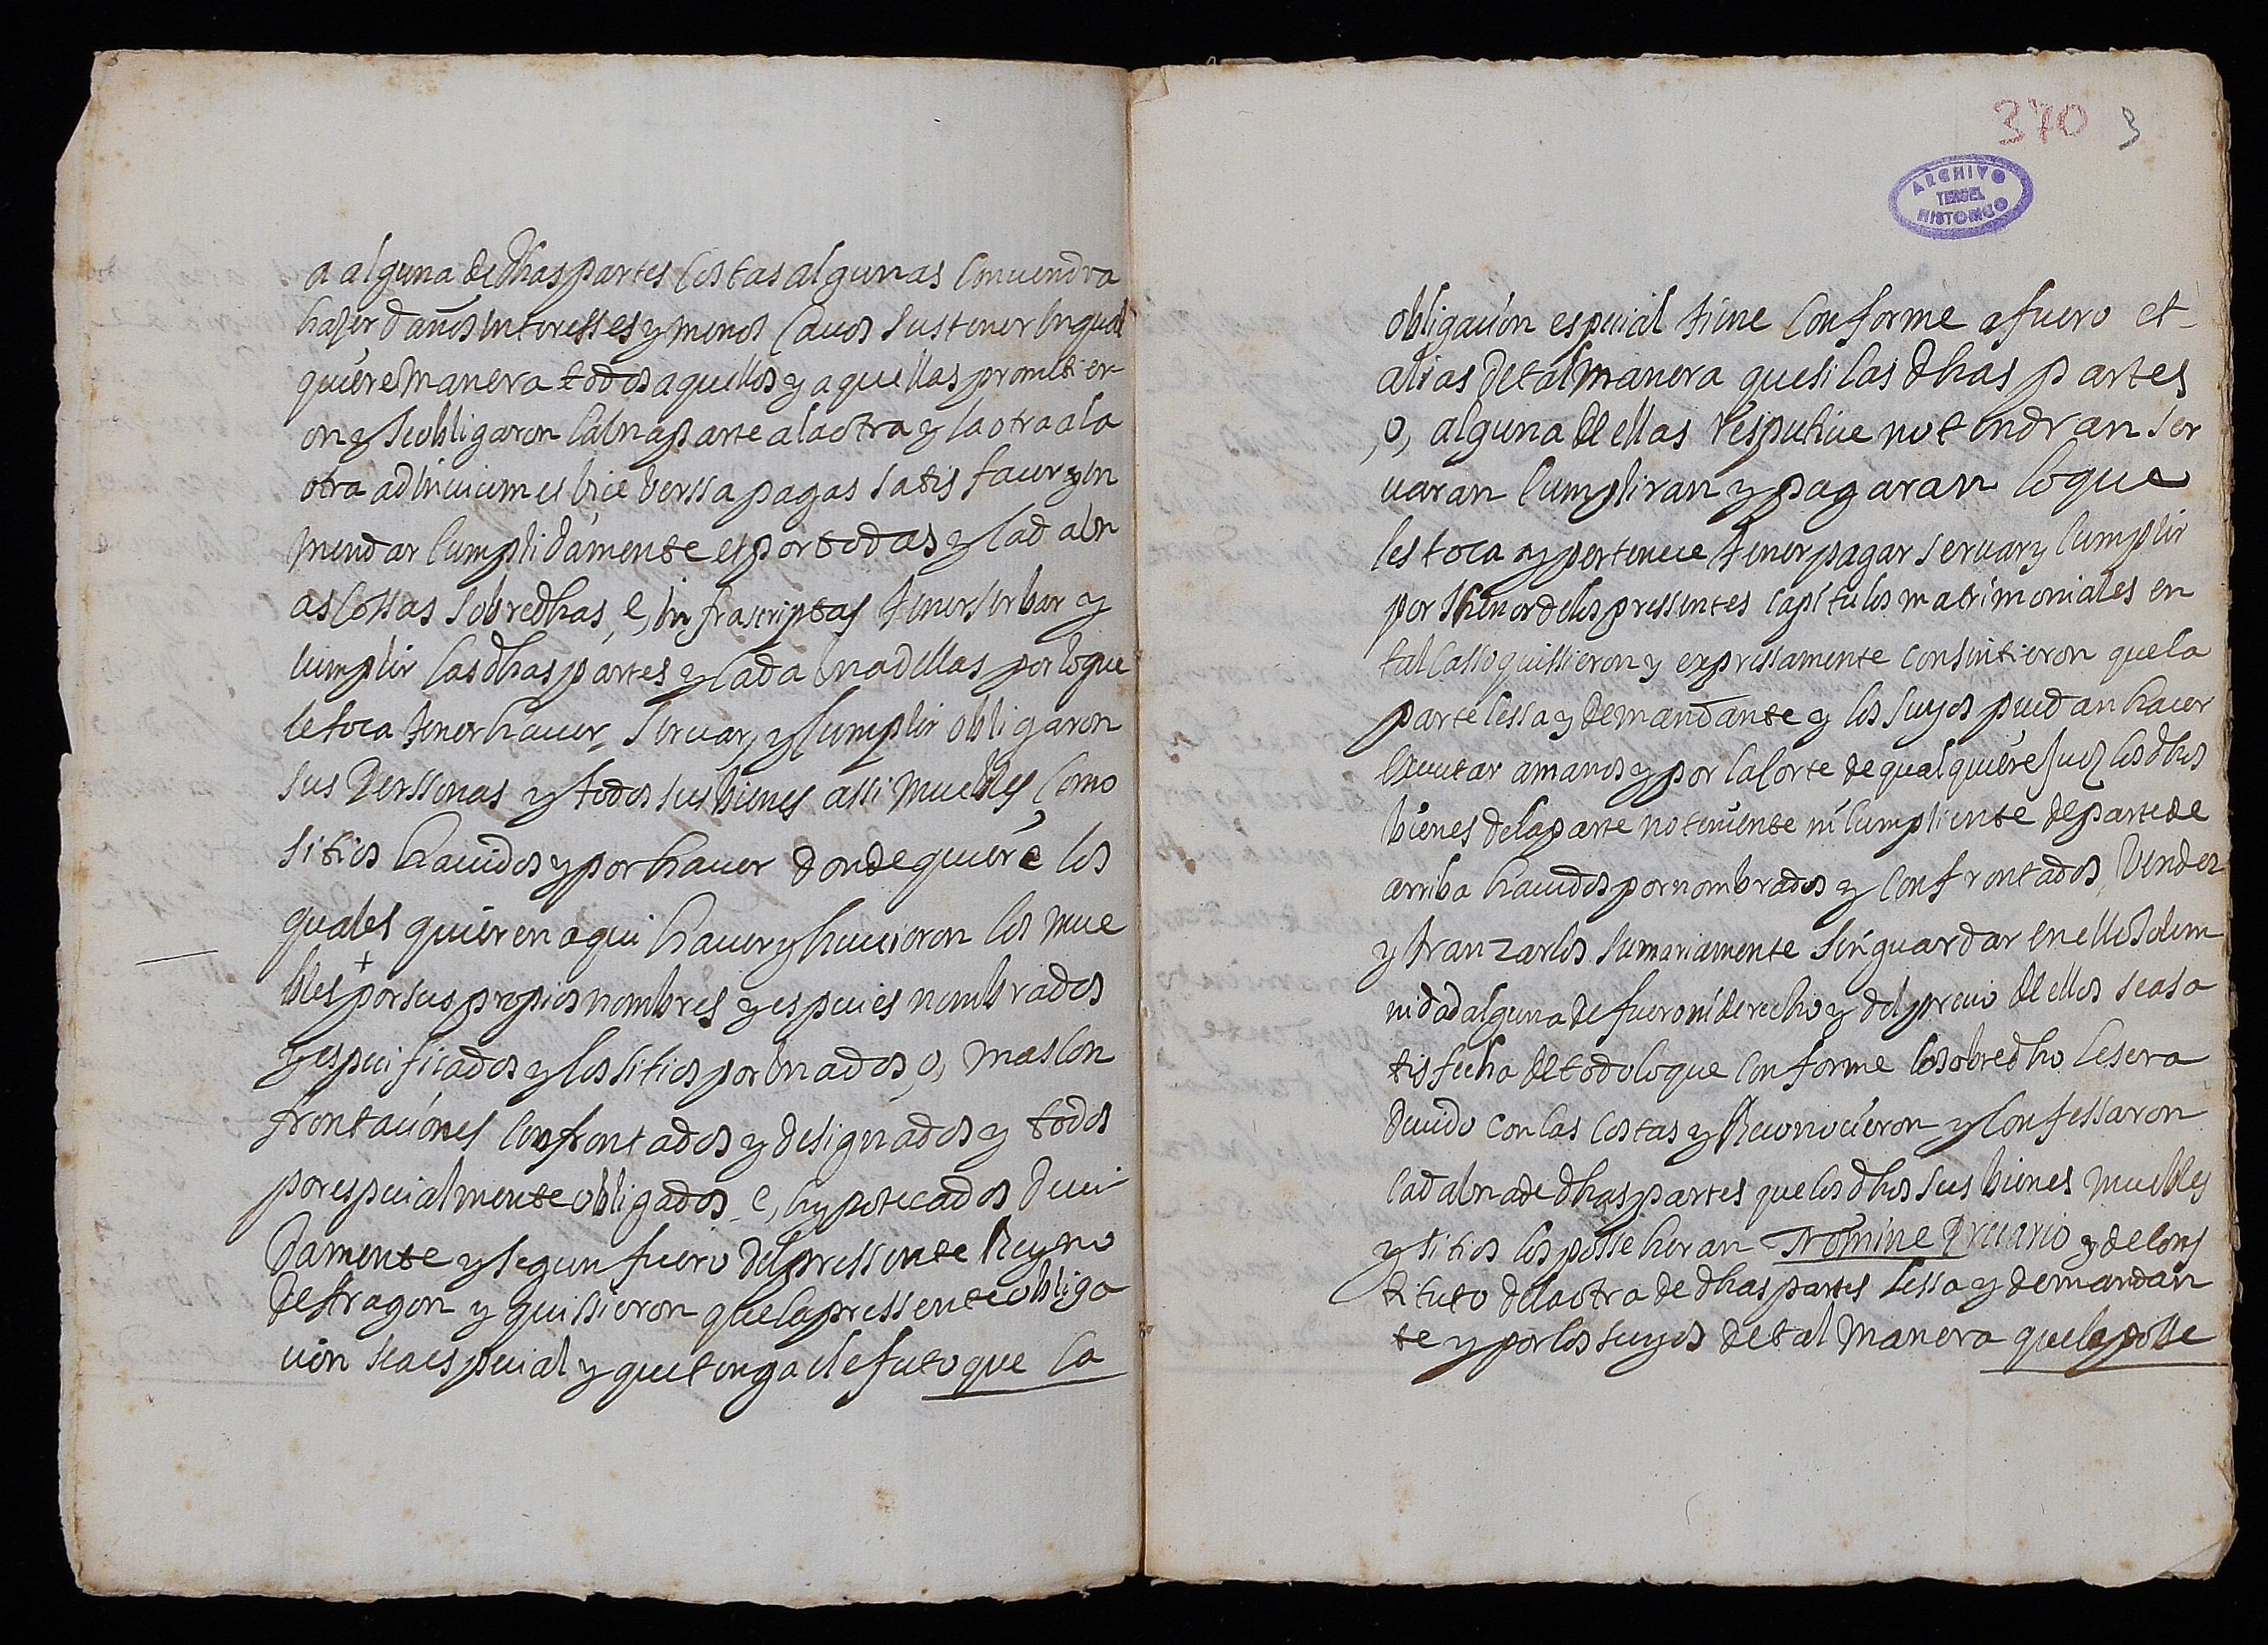 a alguna de dhas partes costas algunas convendra
hazer daños interesses y menos cavos sustener en qual
quiere manera todos aquellos y aquellas prometier
on y se obligaron la una parte a la otra y la otra a la
otra ad invicem et vice verssa pagar satisfacer y en
mendar cumplidamente et por todas y cada un
as cossas sobredhas, e, infrascriptas tener serbar y
cumplir las dhas partes y cada una dellas por lo que
le toca tener hacer, servar, y cumplir obligaron
sus Perssonas y todos sus bienes assi muebles como
sitios havidos y por haver donde quiere los
quales quieren aqui haver y huvieron los mue
bles + por sus propios nombres y especies nombrados
y especificados y los sitios por unados, o, mas con
frontaciones confrontados y designados y todos
por especialmente obligados, e, hypotecados devi
damente y segun fuero del pressente Reyno
de Aragon y quissieron que la pressente obliga
cion sea especial y que tenga el efecto que la
370 3
ARCHIVO
TERUEL
HISTORICO
obligacion especial tiene conforme a fuero et
alias de tal manera que si las dhas partes
, o, alguna de ellas respective no tendran ser
varan cumpliran y pagaran lo que
les toca y pertenece tener pagar servar y cumplir
por thenor de los pressentes capitulos matrimoniales en
tal casso quissieron y expressamente consintieron que la
parte lessa y demandante y los suyos puedan hacer
executar a manos y por la corte de qualquiere Juez los dhos
bienes de la parte no teniente ni cumpliente de parte de
arriba havidos por nombrados y confrontados, vender
y tranzarlos sumariamente sin guardar en ello solem
nidad alguna de fuero ni derecho y del precio de ellos sea sa
tisfecha de todo lo que conforme lo sobredho le sera
devido con las costas y Reconocieron y confessaron
cada una de dhas partes que los dhos sus bienes muebles
y sitios los posseheran Nomine Precario y de cons
tituto de la otra de dhas partes lessa y demandan
te y por los suyos de tal manera que la posse